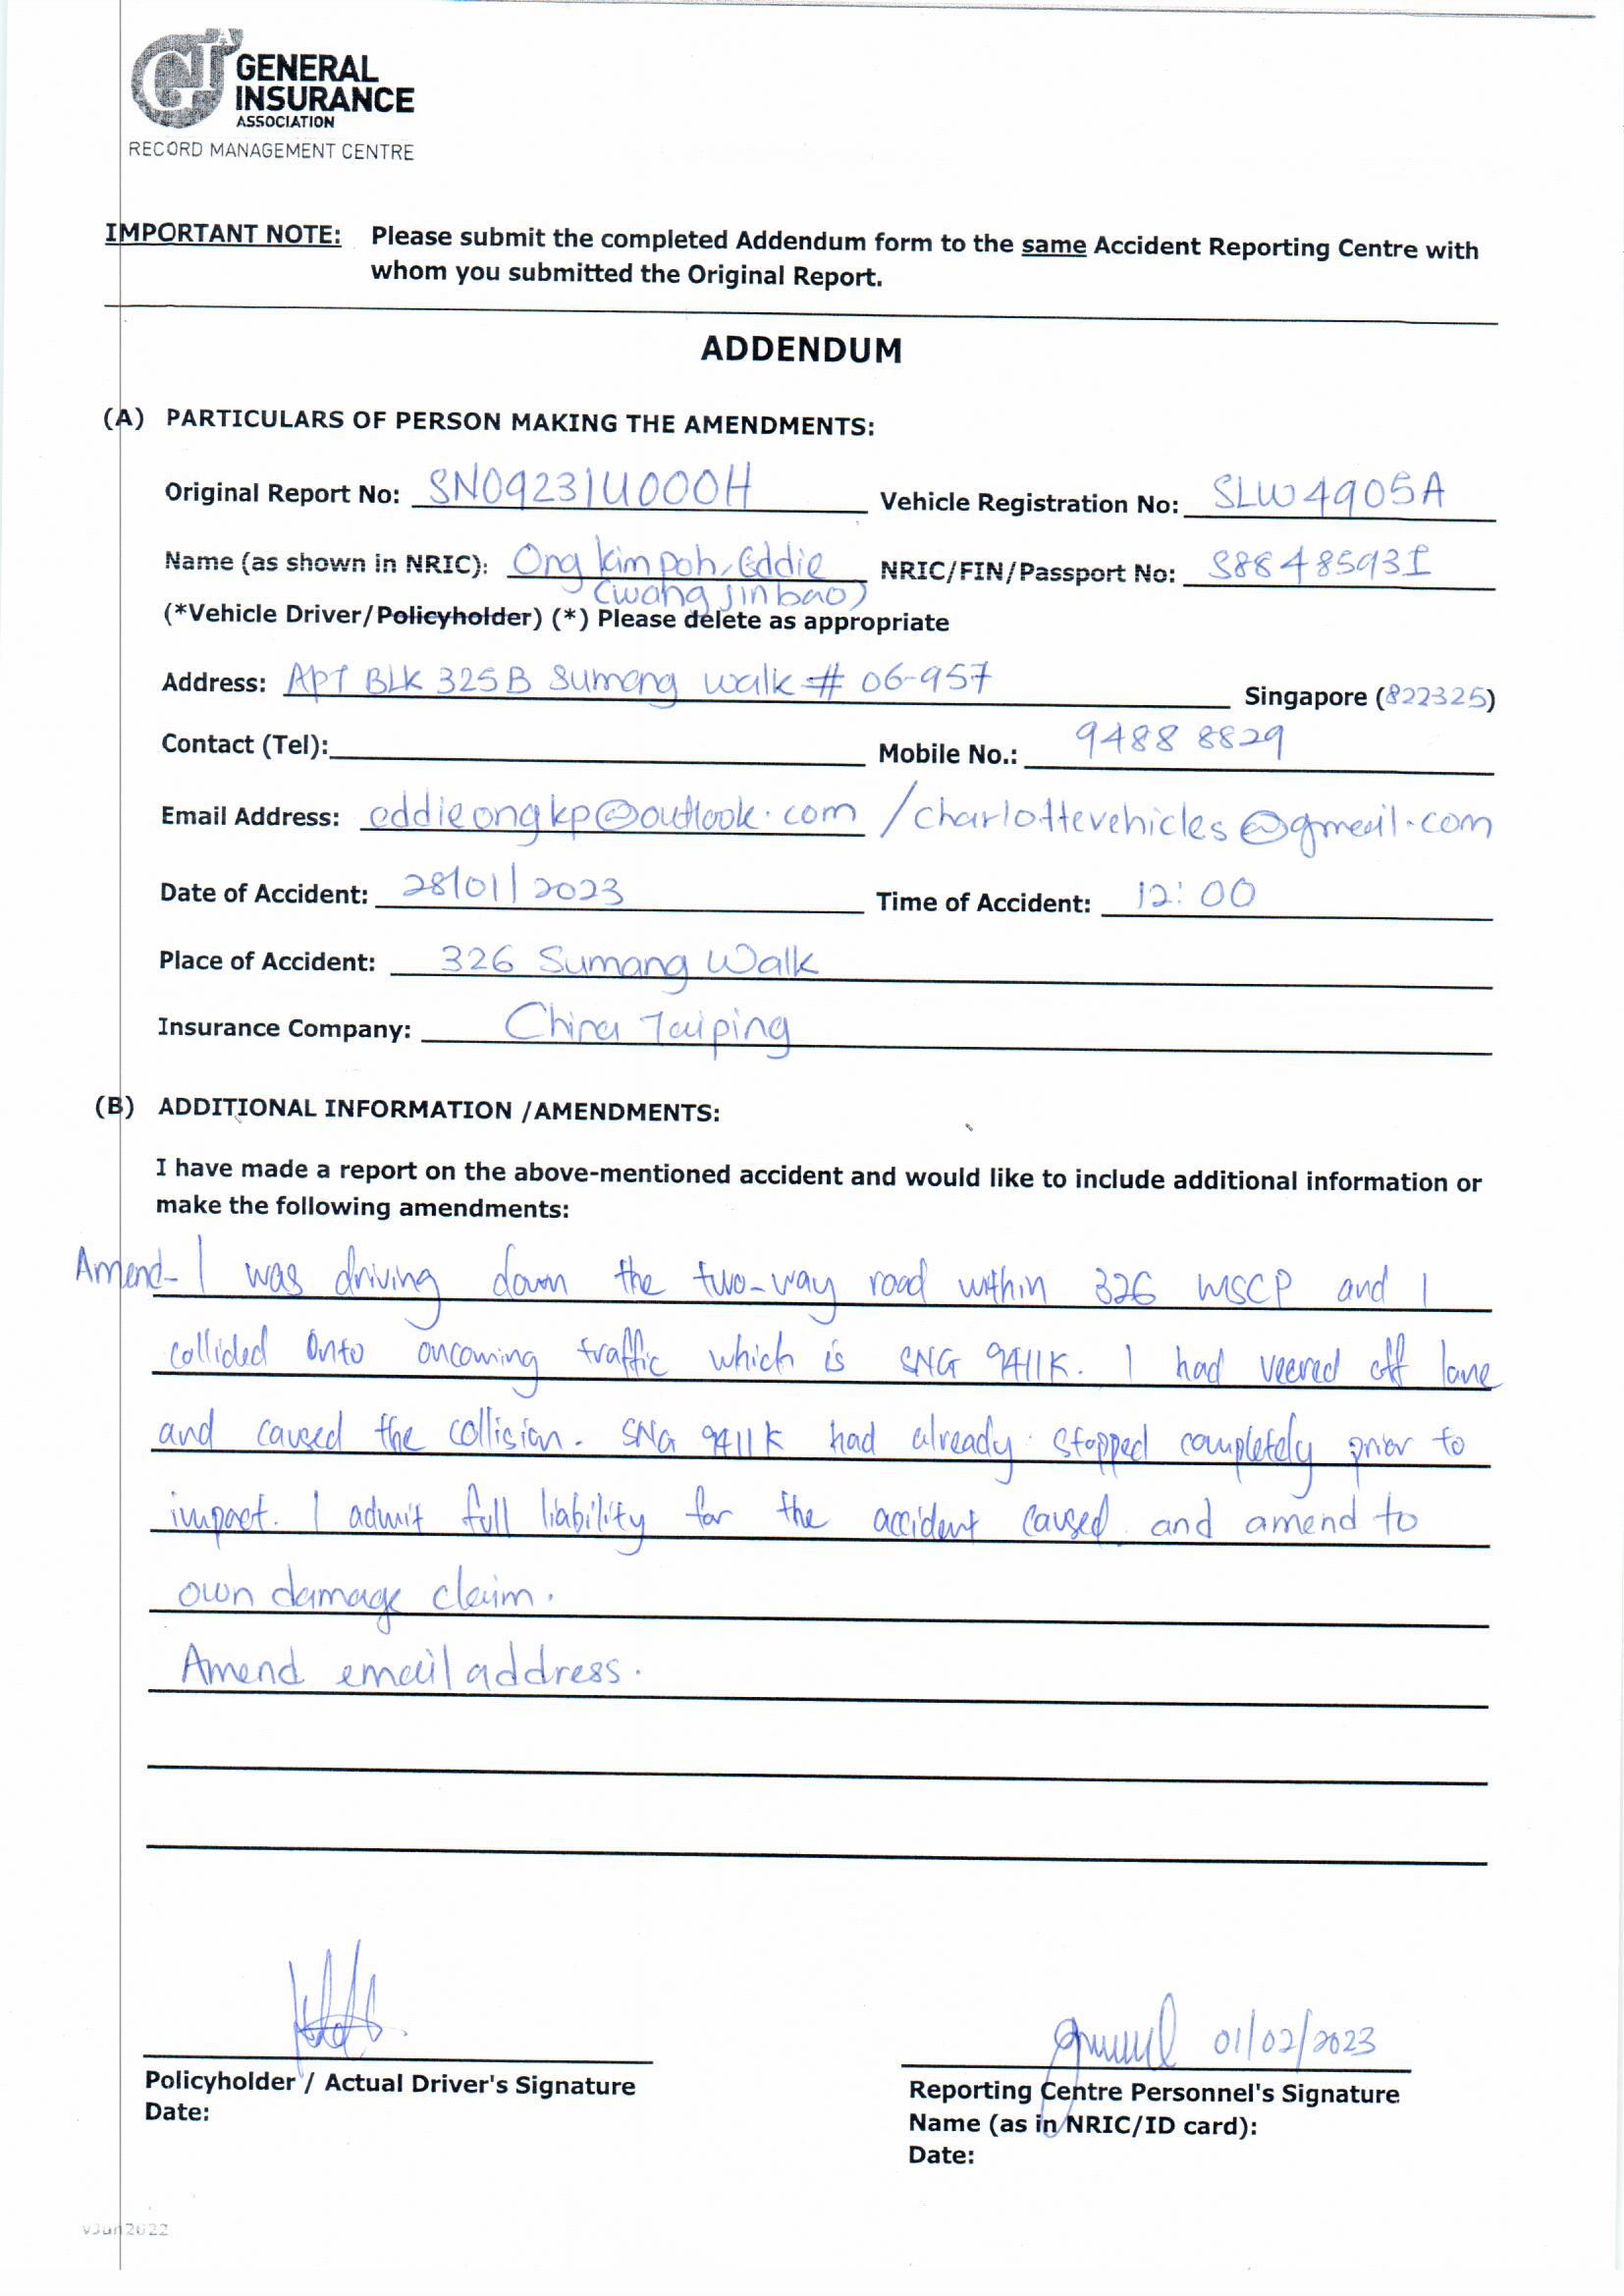 GIA GENERAL
INSURANCE
ASSOCIATION
RECORD MANAGEMENT CENTRE
IMPORTANT NOTE: Please submit the completed Addendum form to the same Accident Reporting Centre with
whom you submitted the Original Report.
ADDENDUM
(A) PARTICULARS OF PERSON MAKING THE AMENDMENTS:
Original Report No: SN09231U000H Vehicle Registration No: SLW4905A
Name (as shown in NRIC): Ong Kim Poh, Eddie NRIC/FIN/Passport No: S8848593I
(Wang Jinbao)
(*Vehicle Driver/Policyholder) (*) Please delete as appropriate
Address: APT BLK 325B Sumang walk # 06-957 Singapore (822325)
Contact (Tel): Mobile No.: 9488 8829
Email Address: eddieongkp@outlook.com /charlottevehicles@gmail.com
Date of Accident: 28/01/2023 Time of Accident: 12:00
Place of Accident: 326 Sumang Walk
Insurance Company: China Taiping
(B) ADDITIONAL INFORMATION /AMENDMENTS:
I have made a report on the above-mentioned accident and would like to include additional information or
make the following amendments:
Amend- I was driving down the two-way road within 326 MSCP and I
collided onto oncoming traffic which is SNG 9411K. I had veered off lane
and caused the collision. SNG 9411K had already stopped completely prior to
impact. I admit full liability for the accident caused and amend to
own damage claim.
Amend email address.
01/02/2023
Policyholder / Actual Driver's Signature
Date:
Reporting Centre Personnel's Signature
Name (as in NRIC/ID card):
Date:
vJun2022